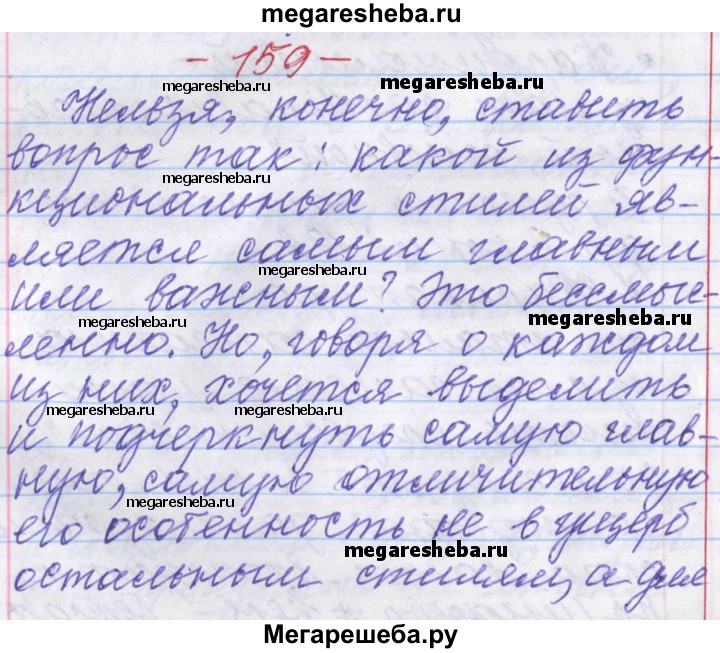 megaresheba.ru
- 159 -
megaresheba.ru
megaresheba.ru
Нельзя, конечно, ставить
megaresheba.ru
вопрос так: какой из фун-
megaresheba.ru
кциональных стилей яв-
ляется самым главным
megaresheba.ru
или важным? Это бессмыс-
megaresheba.ru
megaresheba.ru
ленно. Но, говоря о каждом
из них, хочется выделить
megaresheba.ru
megaresheba.ru
и подчеркнуть самую глав-
ную, самую отличительную
megaresheba.ru
его особенность не в ущерб
megaresheba.ru
остальным стилям, а для
Мегарешеба.ру